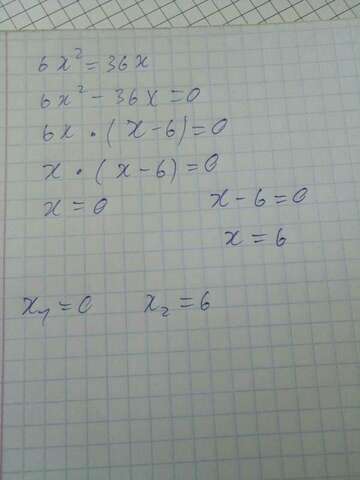 6x² = 36x
6x² - 36x = 0
6x · (x - 6) = 0
x · (x - 6) = 0
x = 0 x - 6 = 0
x = 6
x₁ = 0 x₂ = 6